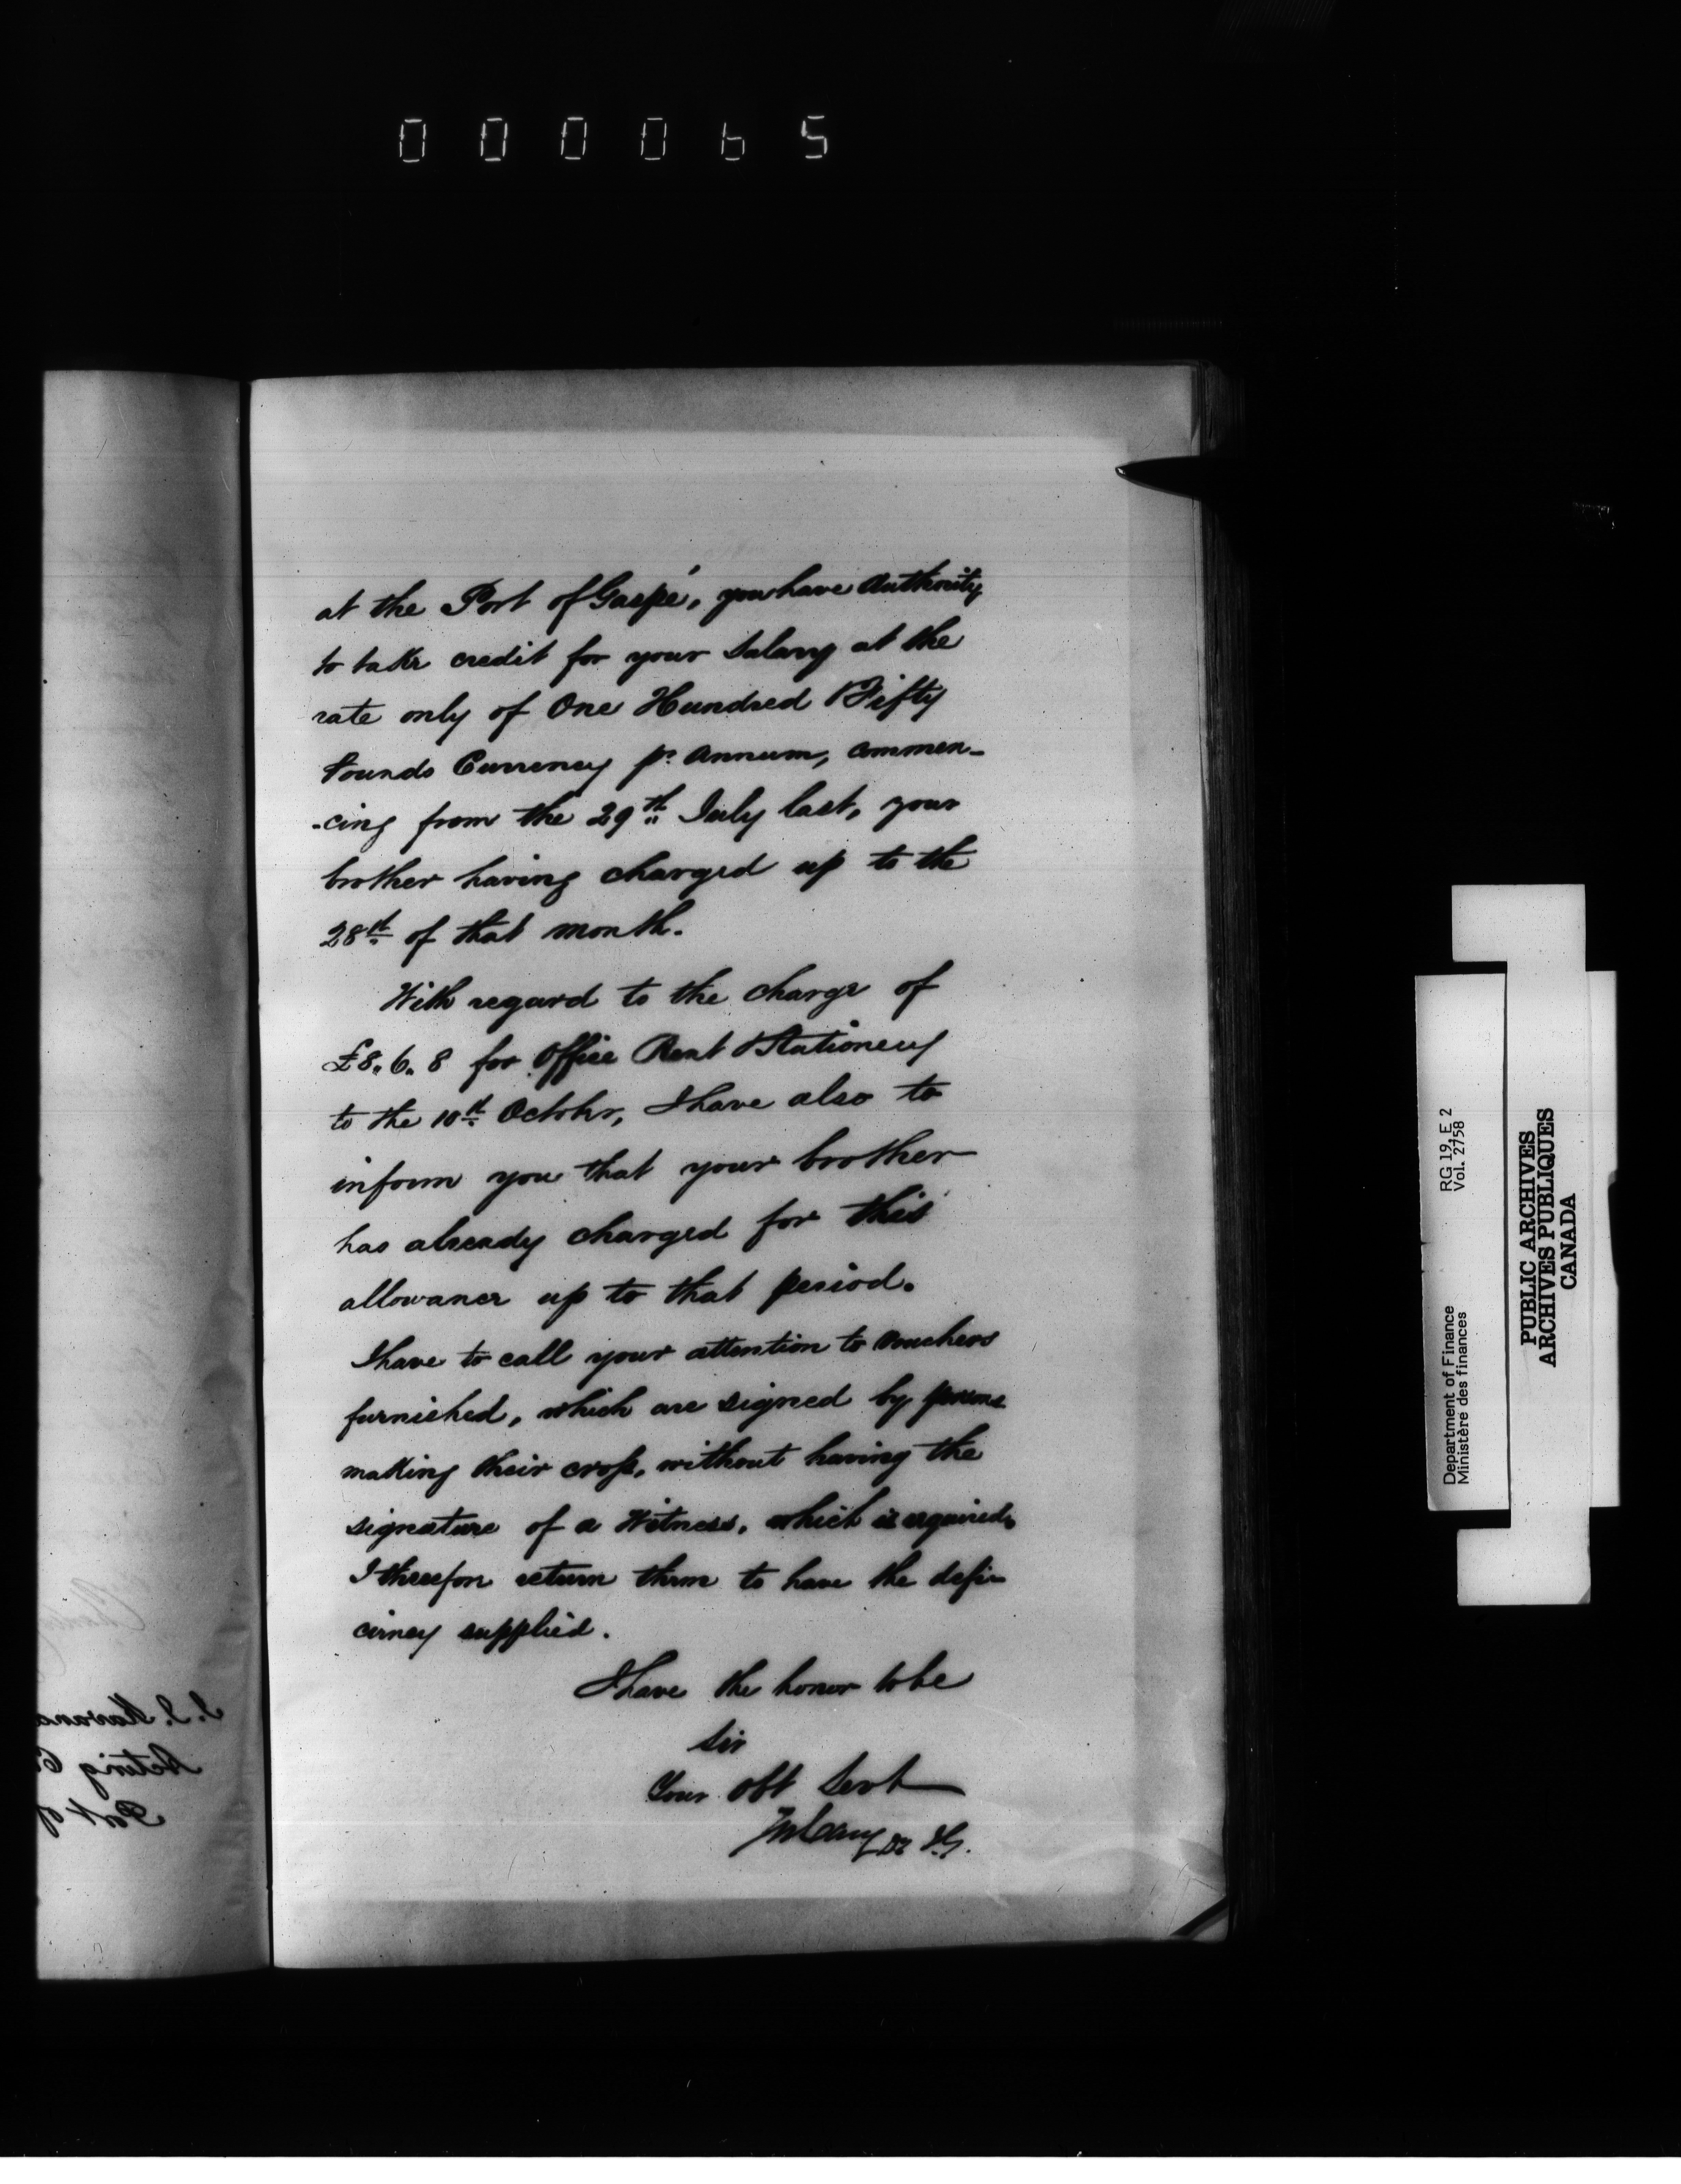 000065
at the Port of Gaspé, you have Authority
to take credit for your Salary at the
rate only of One Hundred & Fifty
Pounds Currency pr. Annum, commen-
-cing from the 29th July last, your
brother having charged up to the
28th of that month.
With regard to the charge of
£8.6.8 for Office Rent & Stationery
to the 10th October, I have also to
inform you that your brother
has already charged for this
allowance up to that period.
I have to call your attention to Vouchers
furnished, which are signed by persons
making their cross, without having the
signature of a Witness, which is required,
I therefore return them to have the defi-
ciency supplied.
I have the honor to be
Sir
Your Obt Servt
J. J. Kavana
Acting
Port of
Department of Finance RG 19, E 2
Ministère des finances Vol. 2758
PUBLIC ARCHIVES
ARCHIVES PUBLIQUES
CANADA